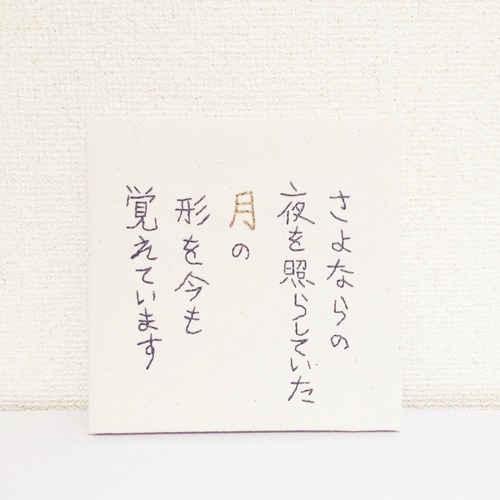 さよならの
夜を照らしていた
月の
形を今も
覚えています